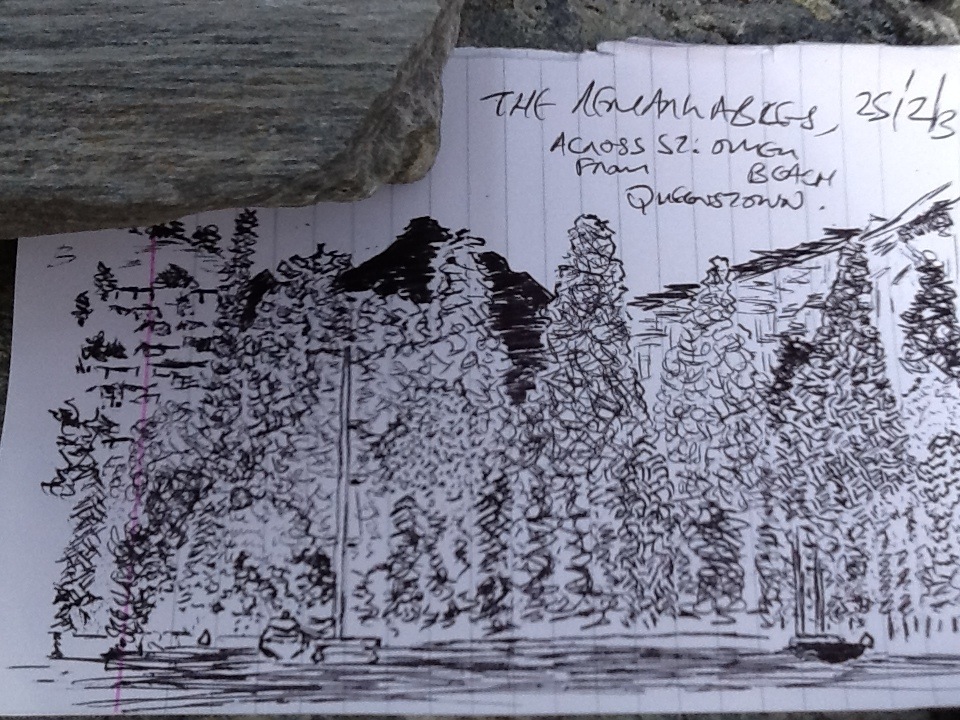 THE REMARKABLES, 25/2/3
ACROSS ST: OMER
FROM BEACH
QUEENSTOWN.